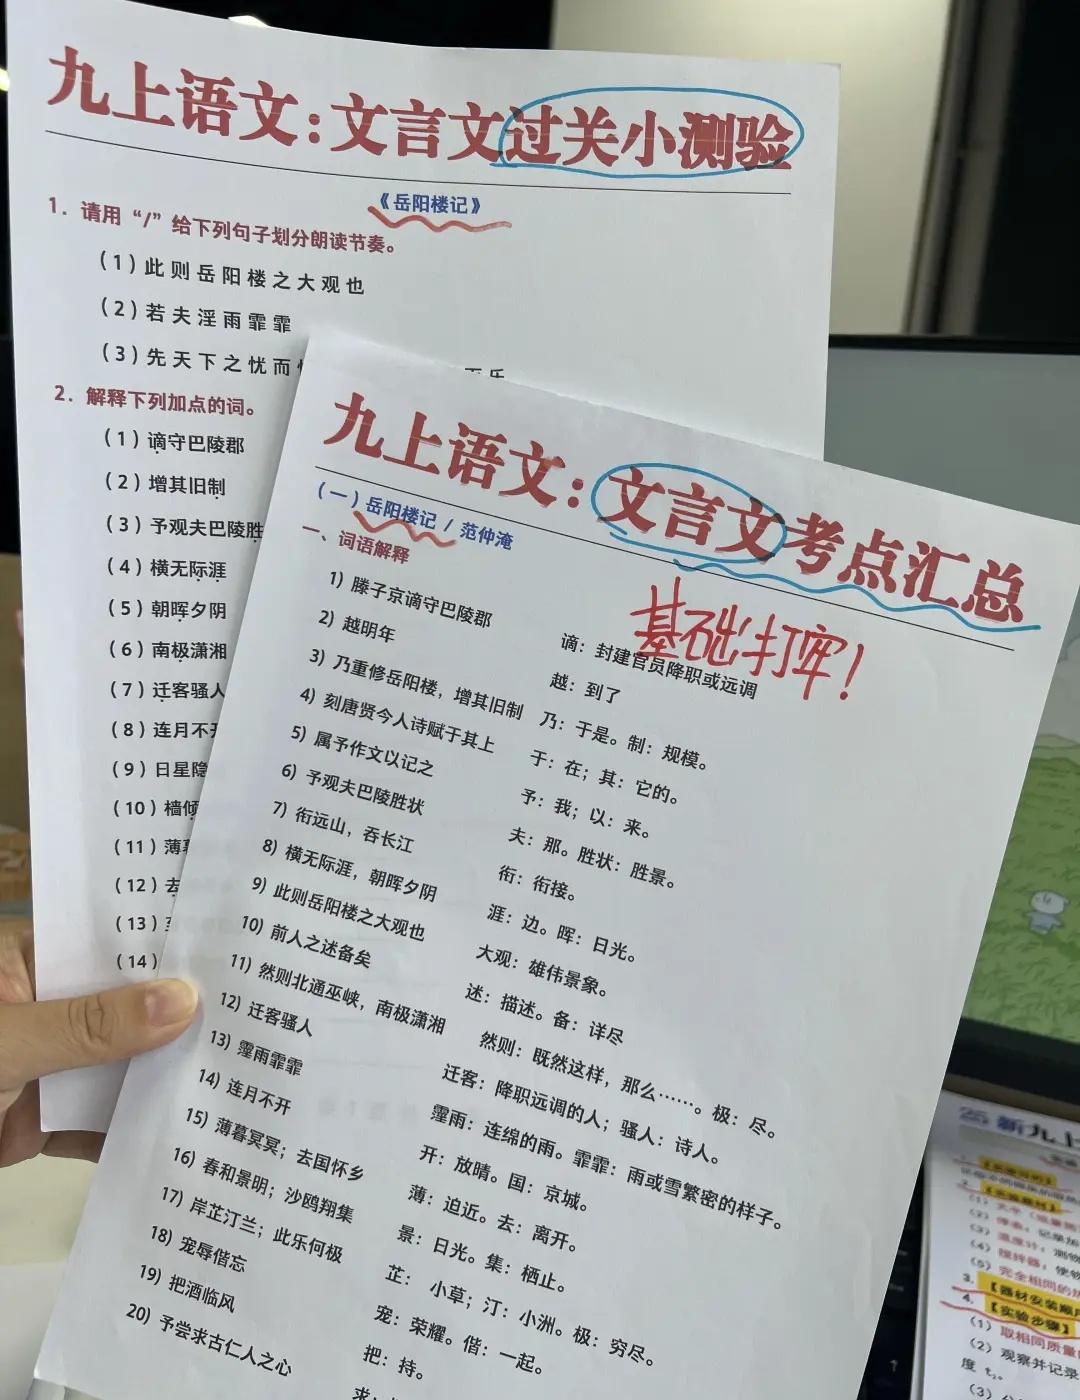 九上语文：文言文过关小测验
《岳阳楼记》
1. 请用“/”给下列句子划分朗读节奏。
(1)此则岳阳楼之大观也
(2)若夫淫雨霏霏
(3)先天下之忧而
乐
2. 解释下列加点的词。
(1)谪守巴陵郡
(2)增其旧制
(3)予观夫巴陵胜
(4)横无际涯
(5)朝晖夕阴
(6)南极潇湘
(7)迁客骚人
(8)连月不开
(9)日星隐
(10)樯倾
(11)薄暮
(12)去
(13)
(14)
九上语文：文言文考点汇总
(一)岳阳楼记 / 范仲淹
基础打牢！
一、词语解释
1) 滕子京谪守巴陵郡 谪：封建官员降职或远调
2) 越明年 越：到了
3) 乃重修岳阳楼，增其旧制 乃：于是。制：规模。
4) 刻唐贤今人诗赋于其上 于：在；其：它的。
5) 属予作文以记之 予：我；以：来。
6) 予观夫巴陵胜状 夫：那。胜状：胜景。
7) 衔远山，吞长江 衔：衔接。
8) 横无际涯，朝晖夕阴 涯：边。晖：日光。
9) 此则岳阳楼之大观也 大观：雄伟景象。
10) 前人之述备矣 述：描述。备：详尽
11) 然则北通巫峡，南极潇湘 然则：既然这样，那么……。极：尽。
12) 迁客骚人 迁客：降职远调的人；骚人：诗人。
13) 霪雨霏霏 霪雨：连绵的雨。霏霏：雨或雪繁密的样子。
14) 连月不开 开：放晴。国：京城。
15) 薄暮冥冥；去国怀乡 薄：迫近。去：离开。
16) 春和景明；沙鸥翔集 景：日光。集：栖止。
17) 岸芷汀兰；此乐何极 芷： 小草；汀：小洲。极：穷尽。
18) 宠辱偕忘 宠：荣耀。偕：一起。
19) 把酒临风 把：持。
20) 予尝求古仁人之心 求：
25 新九上
(1)
(2)
(3) 温度计：测物
(4) 搅拌器：使物
(5) 完全相同的
3. 【器材安装顺序
4. 【实验步骤】
(1) 取相同质量
(2) 观察并记录
度 t₂。
(3)